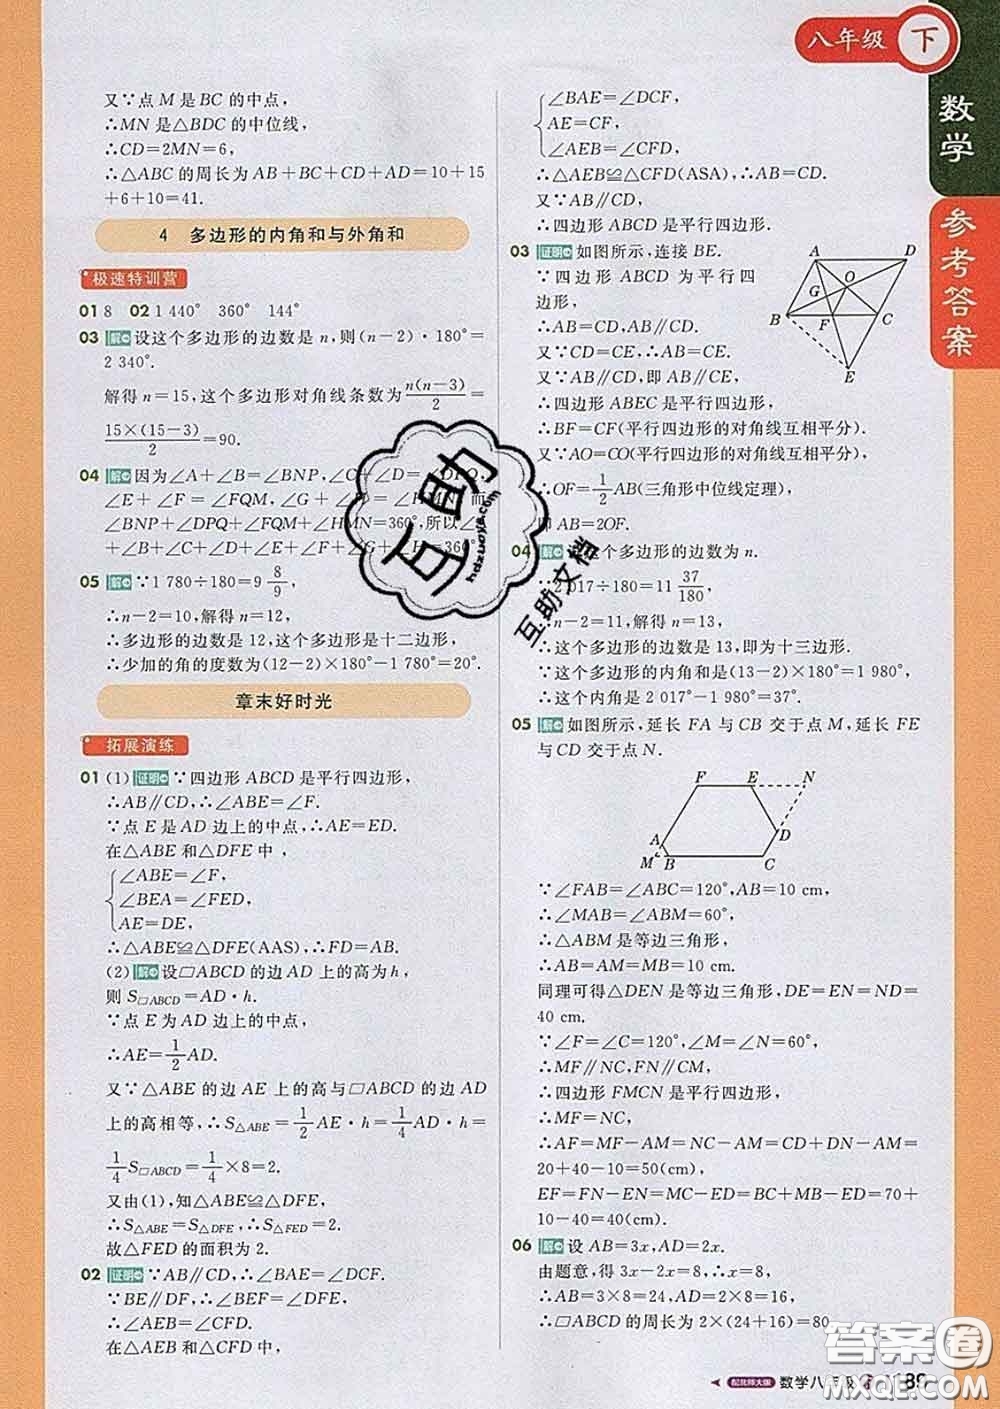 八年级 下
数学
参考答案
又∵点 M 是 BC 的中点，
∴MN 是△BDC 的中位线，
∴CD=2MN=6，
∴△ABC 的周长为 AB+BC+CD+AD=10+15
+6+10=41.
4 多边形的内角和与外角和
极速特训营
01 8 02 1 440° 360° 144°
03 解 设这个多边形的边数是 n，则(n-2)·180°=
2 340°.
解得 n=15，这个多边形对角线条数为 n(n-3)/2 =
15×(15-3)/2 =90.
04 解 因为∠A+∠B=∠BNP，∠C+∠D=∠DPQ，
∠E+∠F=∠FQM，∠G+∠H=∠HMN，而
∠BNP+∠DPQ+∠FQM+∠HMN=360°，所以∠A+
05 解 ∵1 780÷180=9 8/9，
∴n-2=10，解得 n=12，
∴多边形的边数是 12，这个多边形是十二边形，
∴少加的角的度数为(12-2)×180°-1 780°=20°.
章末好时光
拓展演练
01 (1) 证明 ∵四边形 ABCD 是平行四边形，
∴AB∥CD，∴∠ABE=∠F.
∵点 E 是 AD 边上的中点，∴AE=ED.
在△ABE 和△DFE 中，
∠ABE=∠F，
∠BEA=∠FED，
AE=DE，
∴△ABE≌△DFE(AAS)，∴FD=AB.
(2) 解 设□ABCD 的边 AD 上的高为 h，
则 S□ABCD=AD·h.
∵点 E 为 AD 边上的中点，
∴AE=1/2 AD.
又∵△ABE 的边 AE 上的高与□ABCD 的边 AD
上的高相等，∴S△ABE=1/2 AE·h=1/4 AD·h=
1/4 S□ABCD=1/4×8=2.
又由(1)，知△ABE≌△DFE，
∴S△ABE=S△DFE，∴S△FED=2.
故△FED 的面积为 2.
02 证明 ∵AB∥CD，∴∠BAE=∠DCF.
∵BE∥DF，∴∠BEF=∠DFE，
∴∠AEB=∠CFD.
在△AEB 和△CFD 中，
∠BAE=∠DCF，
AE=CF，
∠AEB=∠CFD，
∴△AEB≌△CFD(ASA)，∴AB=CD.
又∵AB∥CD，
∴四边形 ABCD 是平行四边形.
03 证明 如图所示，连接 BE.
∵四边形 ABCD 为平行四
边形，
∴AB=CD，AB∥CD.
又∵CD=CE，∴AB=CE.
又∵AB∥CD，即 AB∥CE，
∴四边形 ABEC 是平行四边形，
∴BF=CF(平行四边形的对角线互相平分).
又∵AO=CO(平行四边形的对角线互相平分)，
∴OF=1/2 AB(三角形中位线定理)，
即 AB=2OF.
A D O G B F C E
04 解 设这个多边形的边数为 n.
∵2 017÷180=11 37/180，
∴n-2=11，解得 n=13，
∴这个多边形的边数为 13，即为十三边形.
∵这个多边形的内角和是(13-2)×180°=1 980°，
∴这个内角是 2 017°-1 980°=37°.
05 解 如图所示，延长 FA 与 CB 交于点 M，延长 FE
与 CD 交于点 N.
F E N A D M B C
∵∠FAB=∠ABC=120°，AB=10 cm，
∴∠MAB=∠ABM=60°，
∴△ABM 是等边三角形，
∴AB=AM=MB=10 cm.
同理可得△DEN 是等边三角形，DE=EN=ND=
40 cm.
∵∠F=∠C=120°，∠M=∠N=60°，
∴MF∥NC，FN∥CM，
∴四边形 FMCN 是平行四边形，
∴MF=NC，
∴AF=MF-AM=NC-AM=CD+DN-AM=
20+40-10=50(cm)，
EF=FN-EN=MC-ED=BC+MB-ED=70+
10-40=40(cm).
06 解 设 AB=3x，AD=2x.
由题意，得 3x-2x=8，∴x=8，
∴AB=3×8=24，AD=2×8=16，
∴□ABCD 的周长为 2×(24+16)=80.
配北师大版 数学八年级
互助
hdzuoye.com
互助文档
答案圈
MXQE.COM